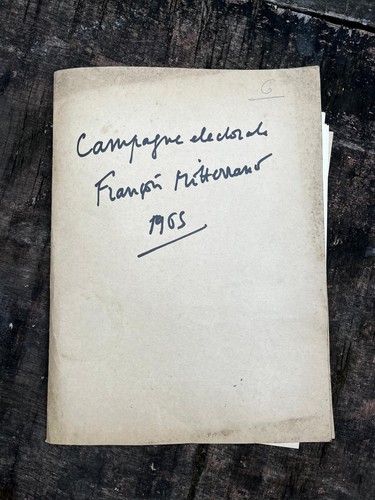 G
Campagne electorale
François Mitterrand
1965